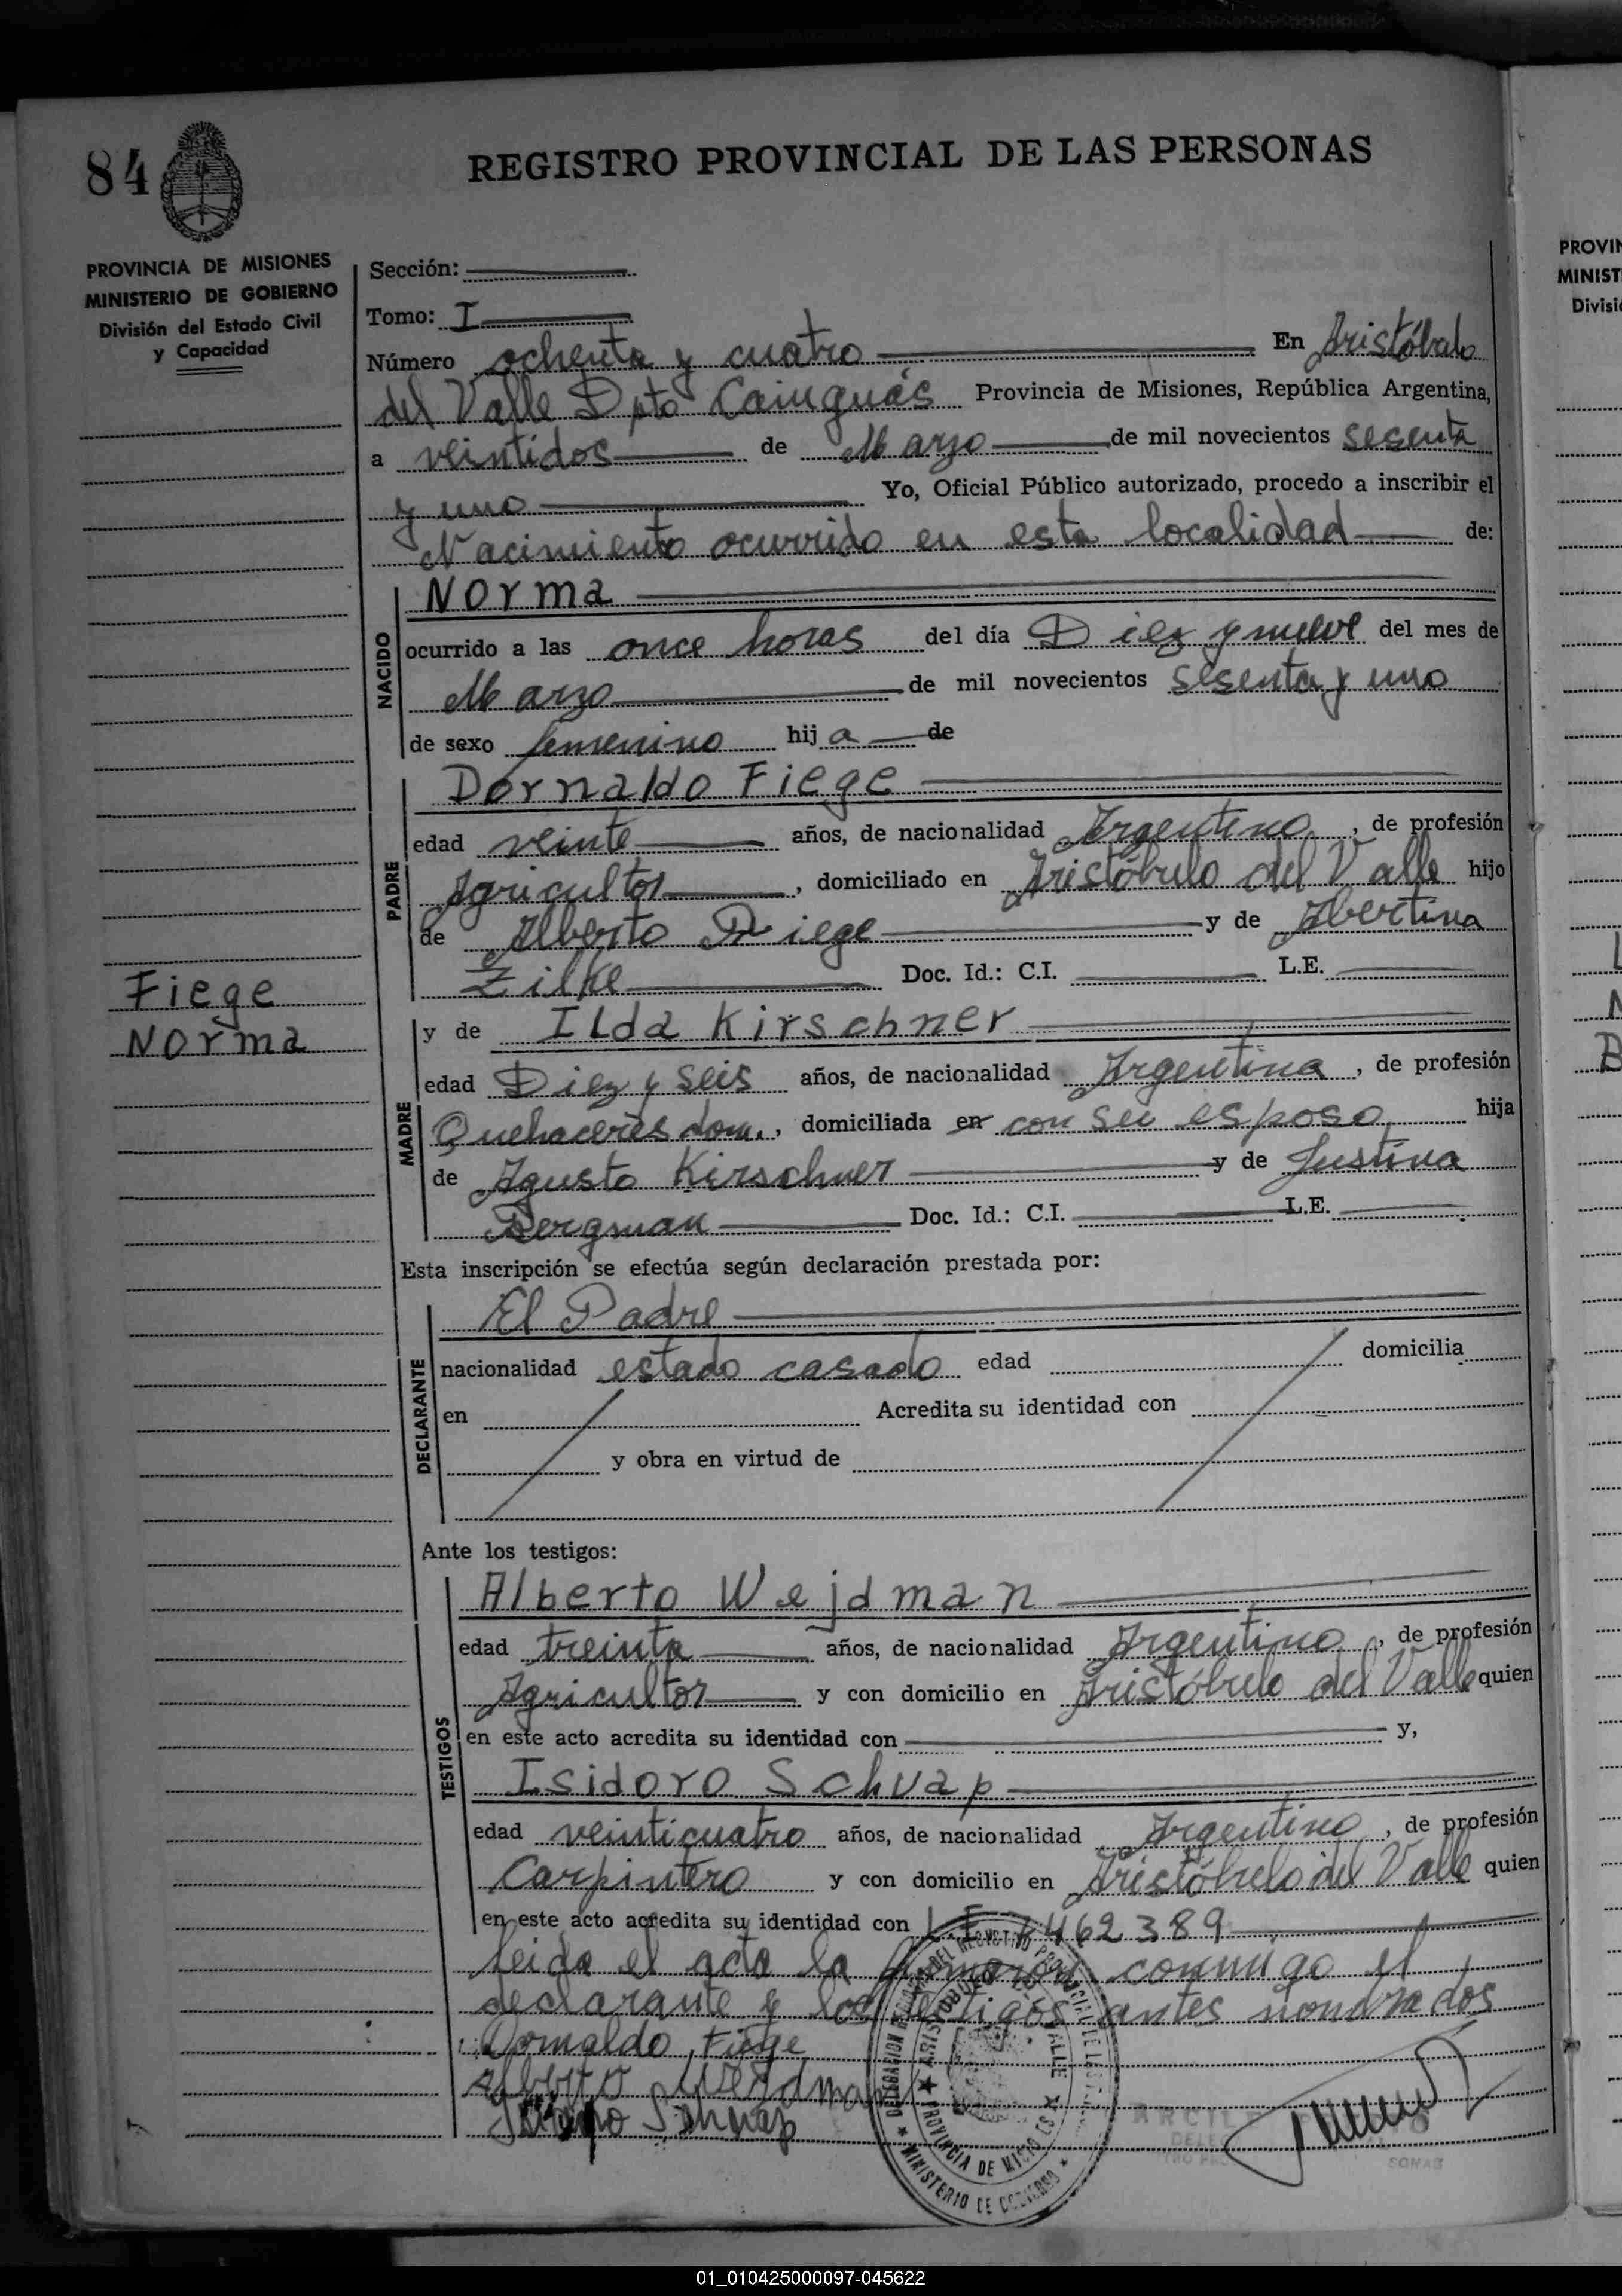 84
REGISTRO PROVINCIAL DE LAS PERSONAS
PROVINCIA DE MISIONES
MINISTERIO DE GOBIERNO
División del Estado Civil
y Capacidad
Sección:
Tomo: I
Número ochenta y cuatro En Aristóbulo
del Valle Dpto Cainguás Provincia de Misiones, República Argentina,
a veintidos de Marzo de mil novecientos sesenta
y uno Yo, Oficial Público autorizado, procedo a inscribir el
Nacimiento ocurrido en esta localidad de:
NACIDO
Norma
ocurrido a las once horas del día Diez y nueve del mes de
Marzo de mil novecientos sesenta y uno
de sexo femenino hija de
PADRE
Dornaldo Fiege
edad veinte años, de nacionalidad Argentino, de profesión
Agricultor, domiciliado en Aristóbulo del Valle hijo
de Alberto Fiege y de Abertina
Zilke Doc. Id.: C.I. L.E.
Fiege
Norma
MADRE
y de Ilda Kirschner
edad Diez y seis años, de nacionalidad Argentina, de profesión
Quehaceres dom., domiciliada en con su esposo hija
de Agusto Kirschner y de Justina
Bergman Doc. Id.: C.I. L.E.
Esta inscripción se efectúa según declaración prestada por:
DECLARANTE
El Padre
nacionalidad estado casado edad domicilia
en Acredita su identidad con
y obra en virtud de
Ante los testigos:
TESTIGOS
Alberto Wejdman
edad treinta años, de nacionalidad Argentino, de profesión
Agricultor y con domicilio en Aristóbulo del Valle quien
en este acto acredita su identidad con y,
Isidoro Schvap
edad veinticuatro años, de nacionalidad Argentino, de profesión
Carpintero y con domicilio en Aristóbulo del Valle quien
en este acto acredita su identidad con L.E. 7462389
leida el acta la firmaron conmigo el
declarante y los testigos antes nombrados
Dornaldo Fiege
PROVINCIA DE MISIONES
MINISTERIO DE GOBIERNO
PROVIN
MINIST
Divisi
01_010425000097-045622